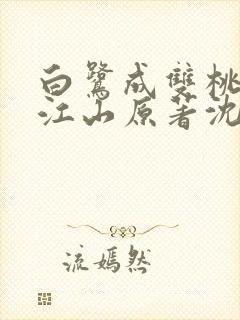 白鹭成雙桃
江山原著沈
流嫣然